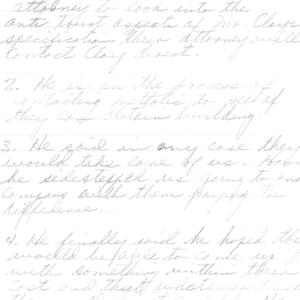 attorney to look into the
anti trust aspects of Mr. Clay's
specifications their attorney will
contact Clay direct.
2. He is in the process of
contacting to see if
they can obtain building.
3. He said in any case they
would take care of us.
he sidestepped us going to
company with them paying the
difference.
4. He finally said he hoped they
would be able to come up
with something within their
cost and that whatever